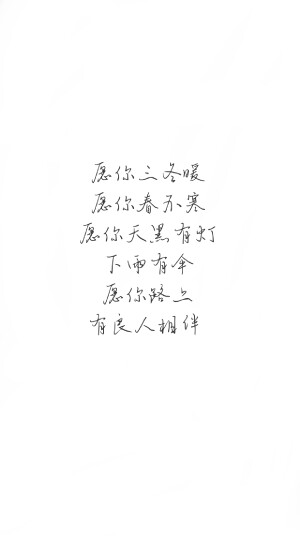 愿你三冬暖
愿你春不寒
愿你天黑有灯
下雨有伞
愿你路上
有良人相伴